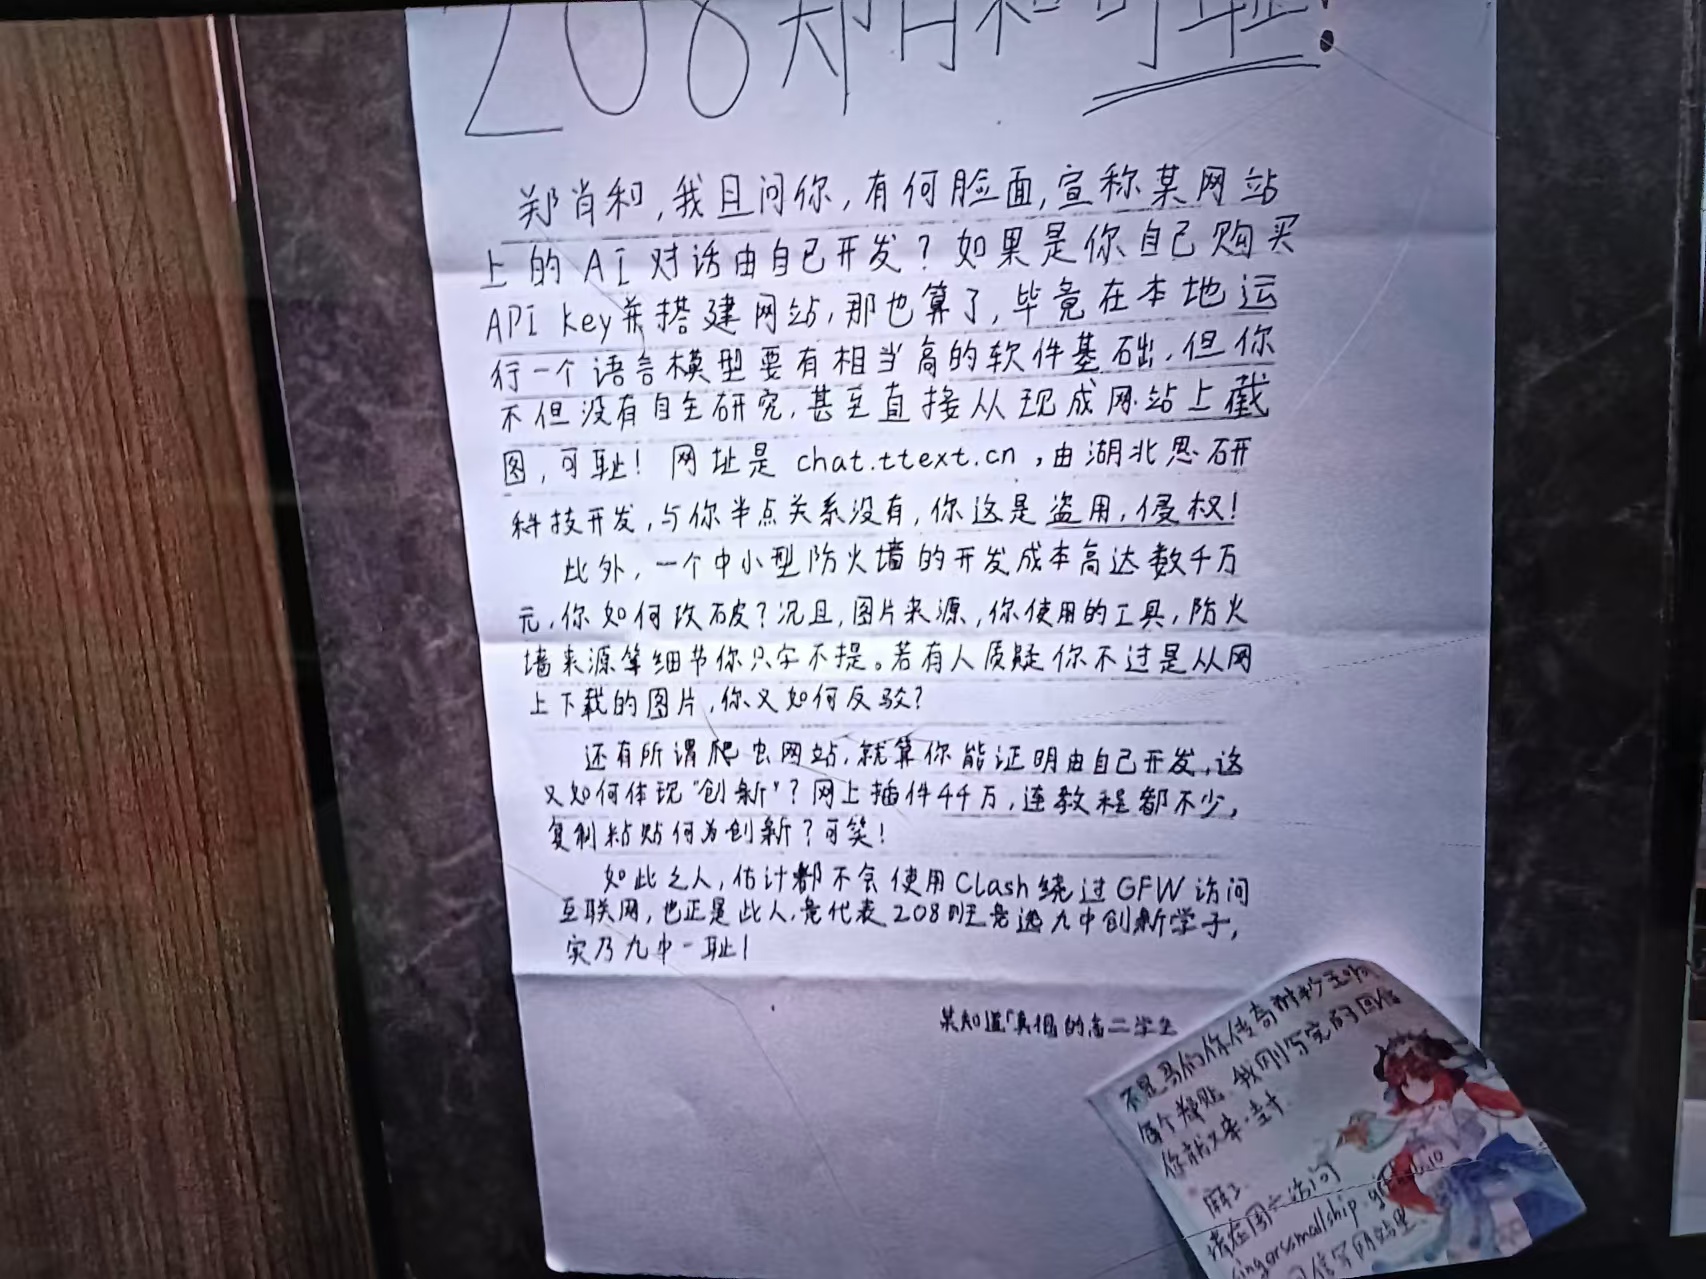 208郑肖和可耻!
郑肖和,我且问你,有何脸面,宣称某网站
上的AI对话由自己开发?如果是你自己购买
API Key并搭建网站,那也算了,毕竟在本地运
行一个语言模型要有相当高的软件基础,但你
不但没有自主研究,甚至直接从现成网站上截
图,可耻!网址是chat.ttext.cn,由湖北思研
科技开发,与你半点关系没有,你这是盗用,侵权!
此外,一个中小型防火墙的开发成本高达数千万
元,你如何攻破?况且,图片来源,你使用的工具,防火
墙来源等细节你只字不提。若有人质疑你不过是从网
上下载的图片,你又如何反驳?
还有所谓爬虫网站,就算你能证明由自己开发,这
又如何体现"创新"?网上插件千千万,连教程都不少,
复制粘贴何为创新?可笑!
如此之人,估计都不会使用Clash绕过GFW访问
互联网,也正是此人,竟代表208班竞选九中创新学子,
实乃九中一耻!
某知道真相的高二学生
不是哥们你传奇耐
每个 我刚写完的回信
你就又来一封
麻了
请在周六访问
smallship.github.io
回信写网站里